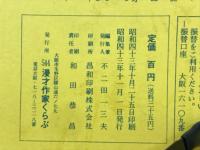 振替をご利用ください。
振替口座　大阪一六一〇九番
定価　百円（送料二十五円）
昭和四十三年十月二十五日印刷
昭和四十三年十一月一日発行
編集兼発行人　不二田一三夫
印刷所　昌和印刷株式会社
印刷責任者　和田恭昌
発行所　漫才作家くらぶ